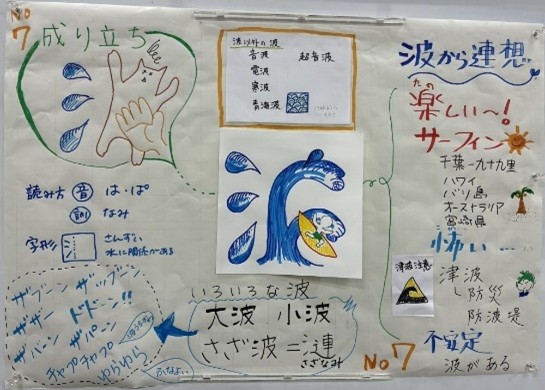 No
7
成り立ち
読み方 音 は・ぱ
訓 なみ
字形 氵 さんずい
水に関係がある
ザブーン ザッブーン
ザザー ドドーン!!
ザバーン ザパーン
チャプチャプ
ゆらゆら
波以外の波
音波 超音波
電波
寒波
青海波
いろいろな波
大波 小波
さざ波=漣
さざなみ
No 7
波から連想
たの
楽しい~!
サーフィン
千葉-九十九里
ハワイ
バリ島
オーストラリア
宮崎県
怖い…
津波注意
津波
防災
防波堤
不安定
波がある